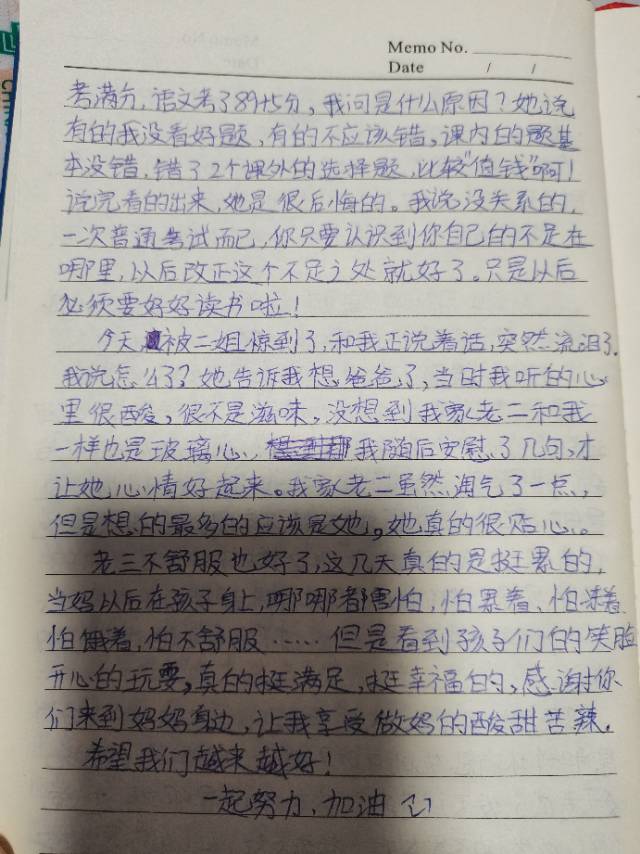 Memo No.
Date / /
考满分,语文考了89+5分,我问是什么原因?她说
有的我没看好题,有的不应该错,课内的题基
本没错,错了2个课外的选择题,比较"值钱"啊!
说完看的出来,她是很后悔的。我说没关系的,
一次普通考试而已,你只要认识到你自己的不足在
哪里,以后改正这个不足之处就好了。只是以后
必须要好好读书啦!
今天被二姐惊到了,和我正说着话,突然流泪了.
我说怎么了?她告诉我想爸爸了,当时我听的心
里很酸,很不是滋味,没想到我家老二和我
一样也是玻璃心,我随后安慰了几句,才
让她心情好起来。我家老二虽然淘气了一点,
但是想的最多的应该是她,她真的很贴心。
老三不舒服也好了,这几天真的是挺累的,
当妈以后在孩子身上,哪哪都害怕,怕累着、怕
怕饿着,怕不舒服……但是看到孩子们的笑脸
开心的玩耍,真的挺满足,挺幸福的,感谢你
们来到妈妈身边,让我享受做妈的酸甜苦辣。
希望我们越来越好!
一起努力、加油